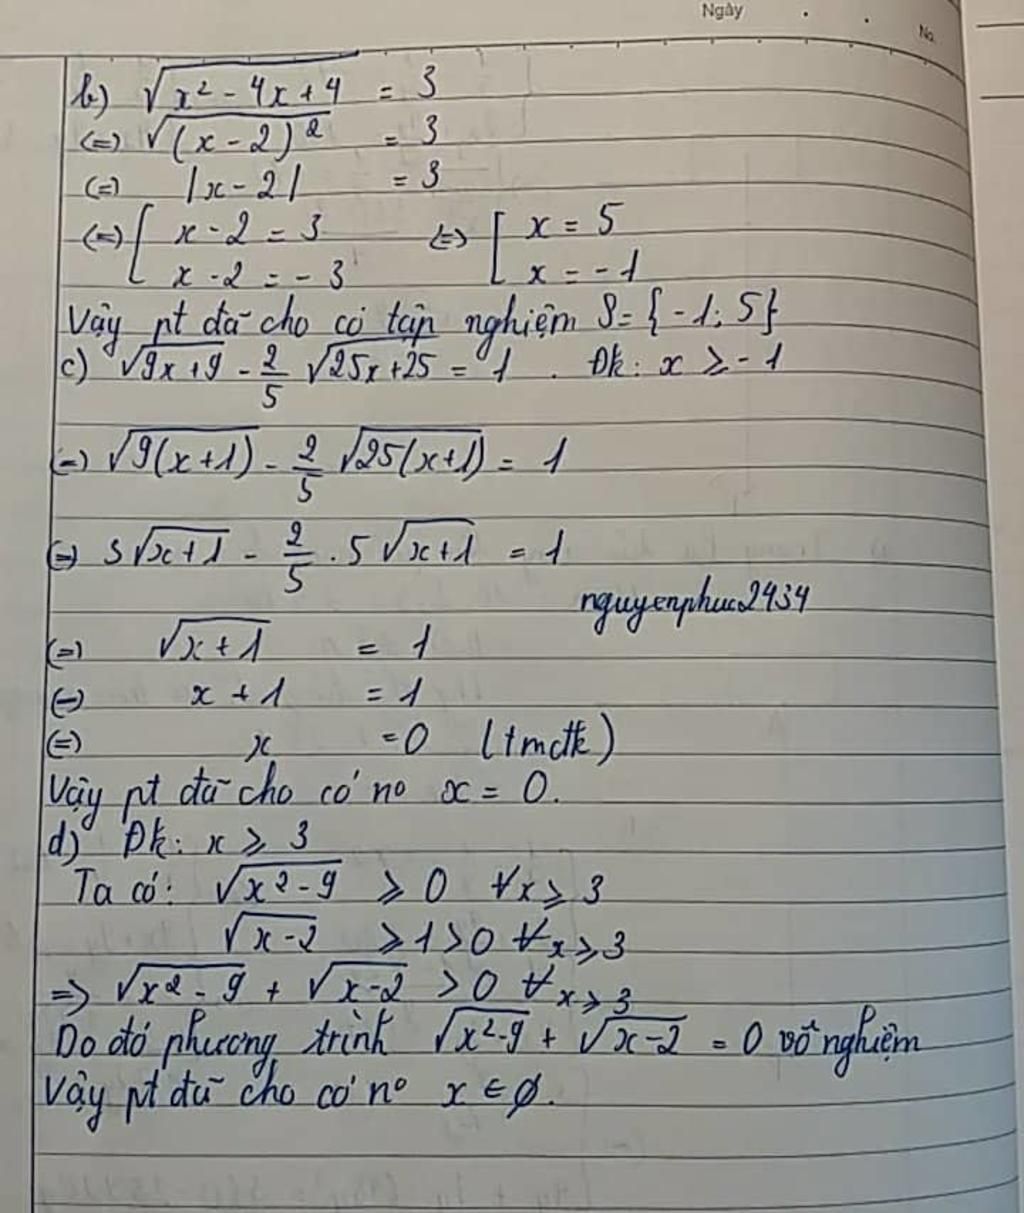 Ngày
No.
b) √(x² - 4x + 4) = 3
(=) √((x - 2)²) = 3
(=) |x - 2| = 3
(=) [ x - 2 = 3 (=) [ x = 5
x - 2 = - 3 x = - 1
Vậy pt đã cho có tập nghiệm S = { - 1; 5}
c) √(9x + 9) - 2/5 √(25x + 25) = 1 . Đk: x ≥ - 1
(=) √(9(x + 1)) - 2/5 √(25(x + 1)) = 1
(=) 3√(x + 1) - 2/5 . 5√(x + 1) = 1
nguyenphuc2434
(=) √(x + 1) = 1
(=) x + 1 = 1
(=) x = 0 (tmđk)
Vậy pt đã cho có nº x = 0.
d) Đk: x ≥ 3
Ta có: √(x² - 9) ≥ 0 ∀x ≥ 3
√(x - 2) ≥ 1 > 0 ∀x ≥ 3
=> √(x² - 9) + √(x - 2) > 0 ∀x ≥ 3
Do đó phương trình √(x² - 9) + √(x - 2) = 0 vô nghiệm
Vậy pt đã cho có nº x ∈ ∅.